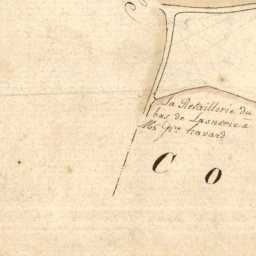 La Retaillerie du
bas de Lasnerie a
Mr Pre havard
C O